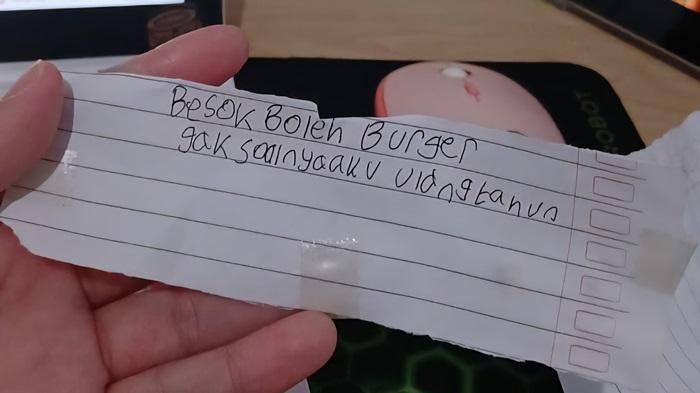 Besok Boleh Burger
gak soalnyaaku ulangtahun
ROBOT